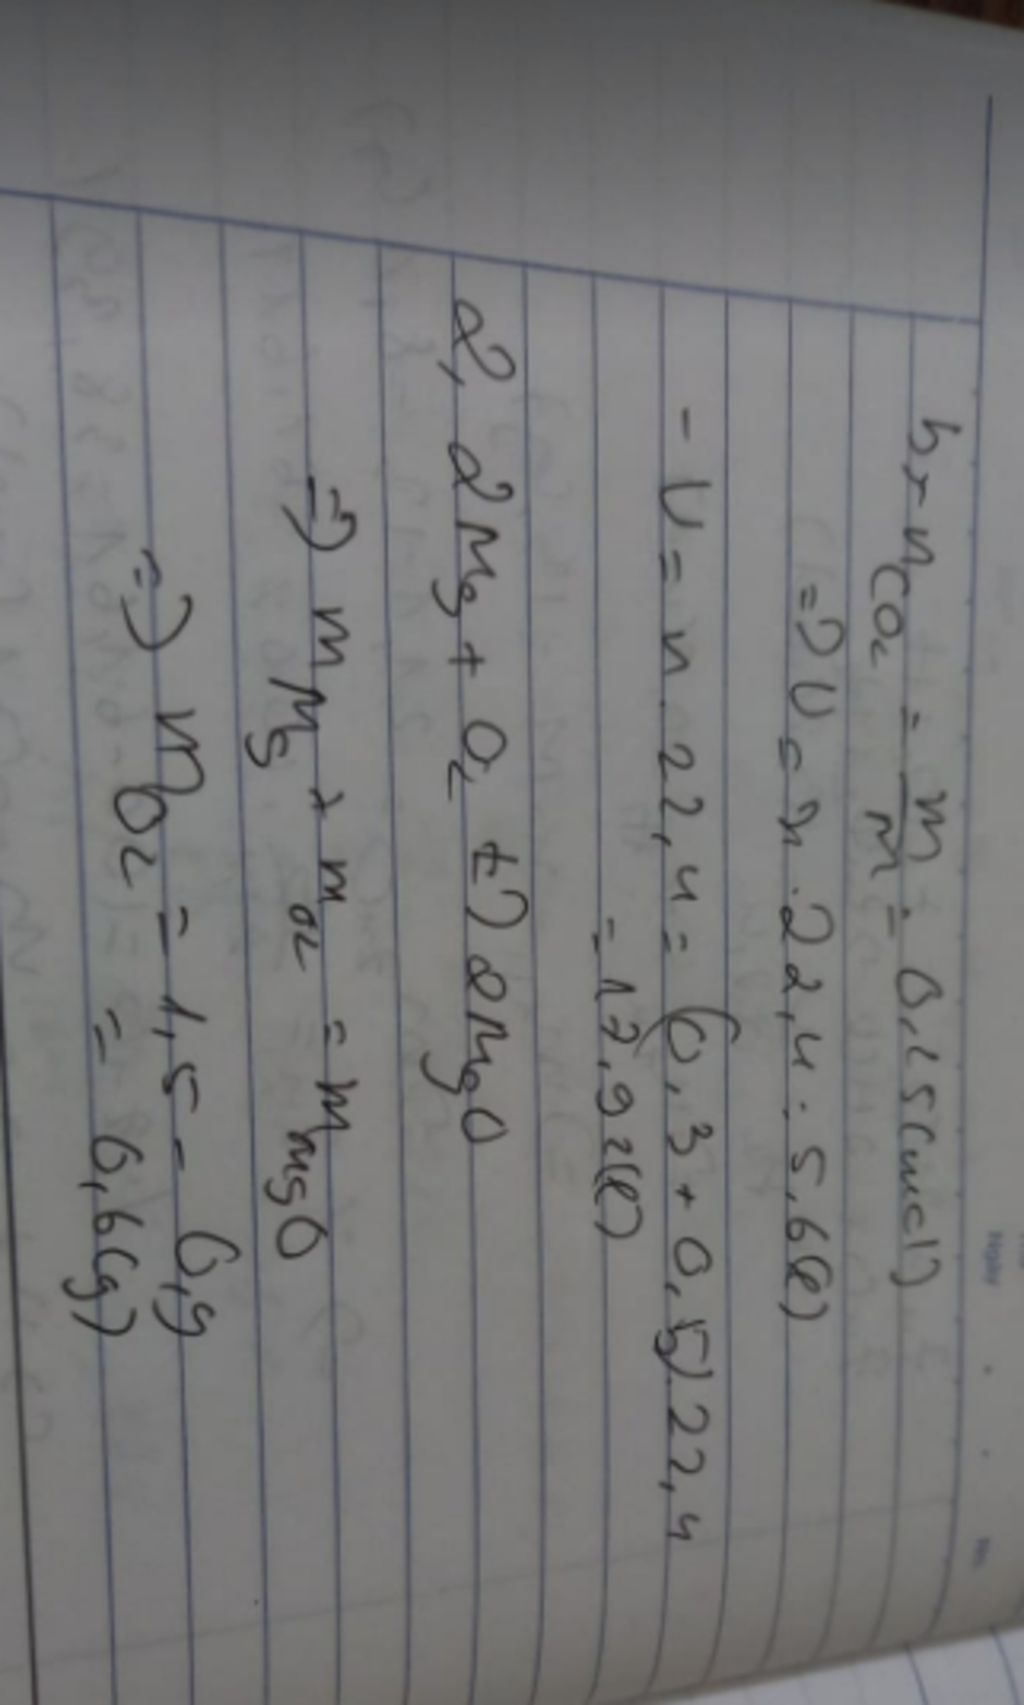 b, - nCO₂ = m/M = 0,25(mol)
=> V = n.22,4 = 5,6(l)
- V = n.22,4 = (0,3+0,5)22,4
= 17,92(l)
2, 2Mg + O₂ t) 2MgO
=> mMg + mO₂ = mMgO
=> mO₂ = 1,5 - 0,9
= 0,6(g)
Ngày
No.